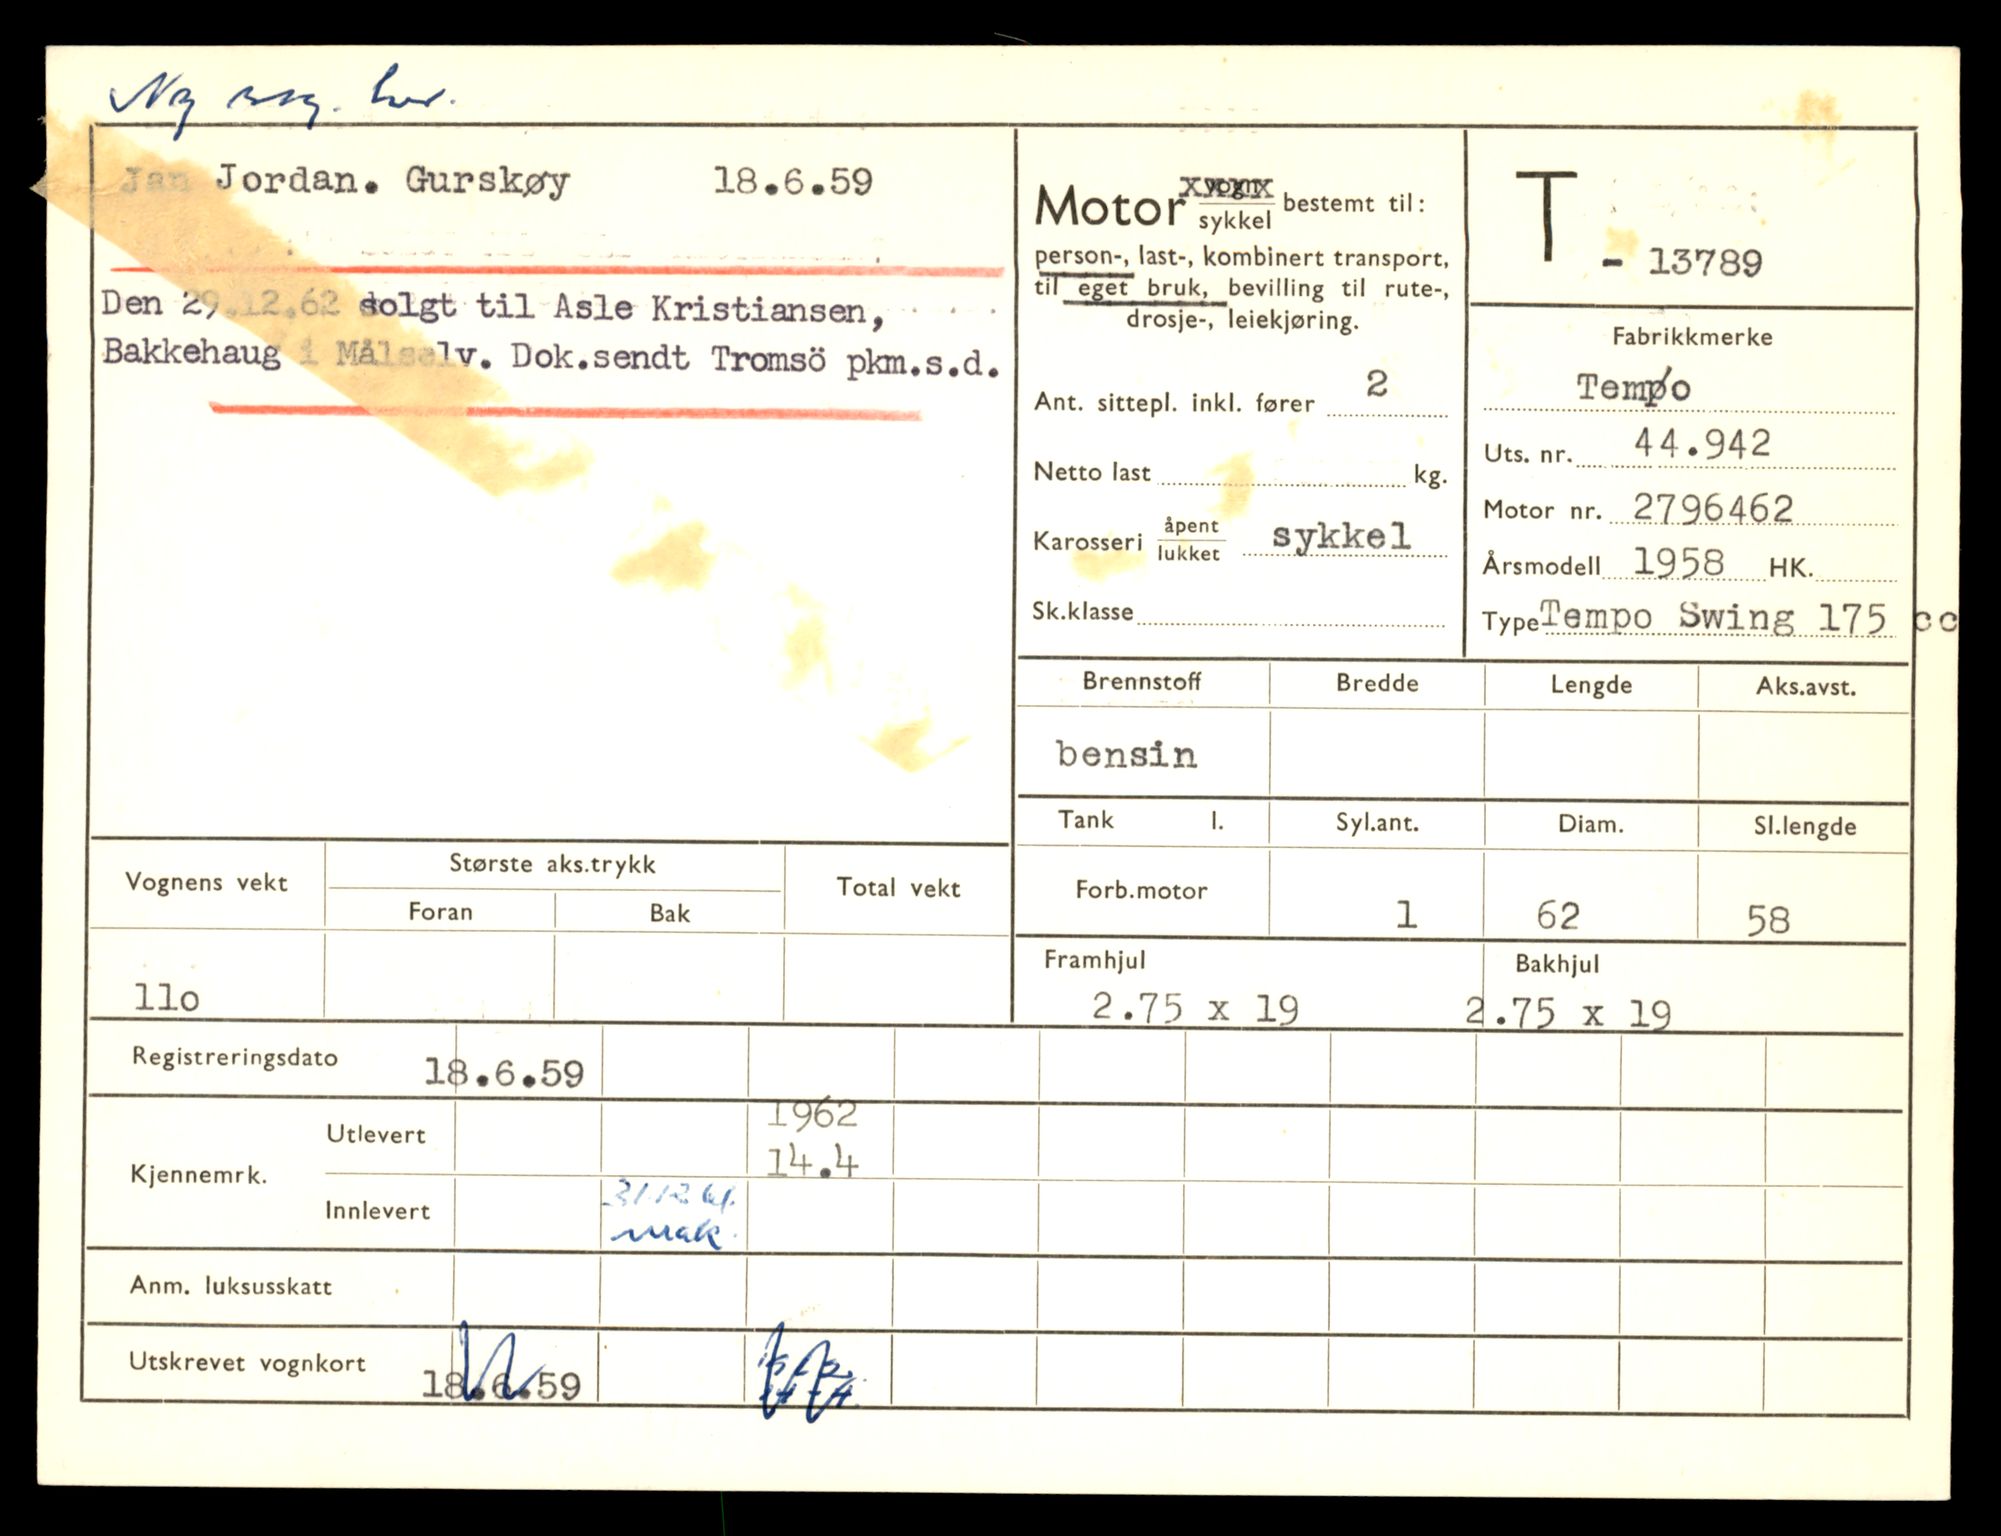 Ny
Jan Jordan. Gurskøy 18.6.59
Den 29.12.62 solgt til Asle Kristiansen,
Bakkehaug i Målselv. Dok.sendt Tromsö pkm.s.d.
Motor vogn/sykkel bestemt til:
person-, last-, kombinert transport,
til eget bruk, bevilling til rute-,
drosje-, leiekjøring.
Ant. sittepl. inkl. fører 2
Netto last kg.
Karosseri åpent/lukket sykkel
Sk.klasse
T - 13789
Fabrikkmerke
Tempo
Uts. nr. 44.942
Motor nr. 2796462
Årsmodell 1958 HK.
Type Tempo Swing 175 cc
Brennstoff Bredde Lengde Aks.avst.
bensin
Tank l. Syl.ant. Diam. Sl.lengde
Forb.motor 1 62 58
Framhjul Bakhjul
2.75 x 19 2.75 x 19
Vognens vekt Største aks.trykk Total vekt
Foran Bak
11o
Registreringsdato 18.6.59
Kjennemrk.
Utlevert 1962
14.4
Innlevert 31.12.61.
mak.
Anm. luksusskatt
Utskrevet vognkort 18.6.59